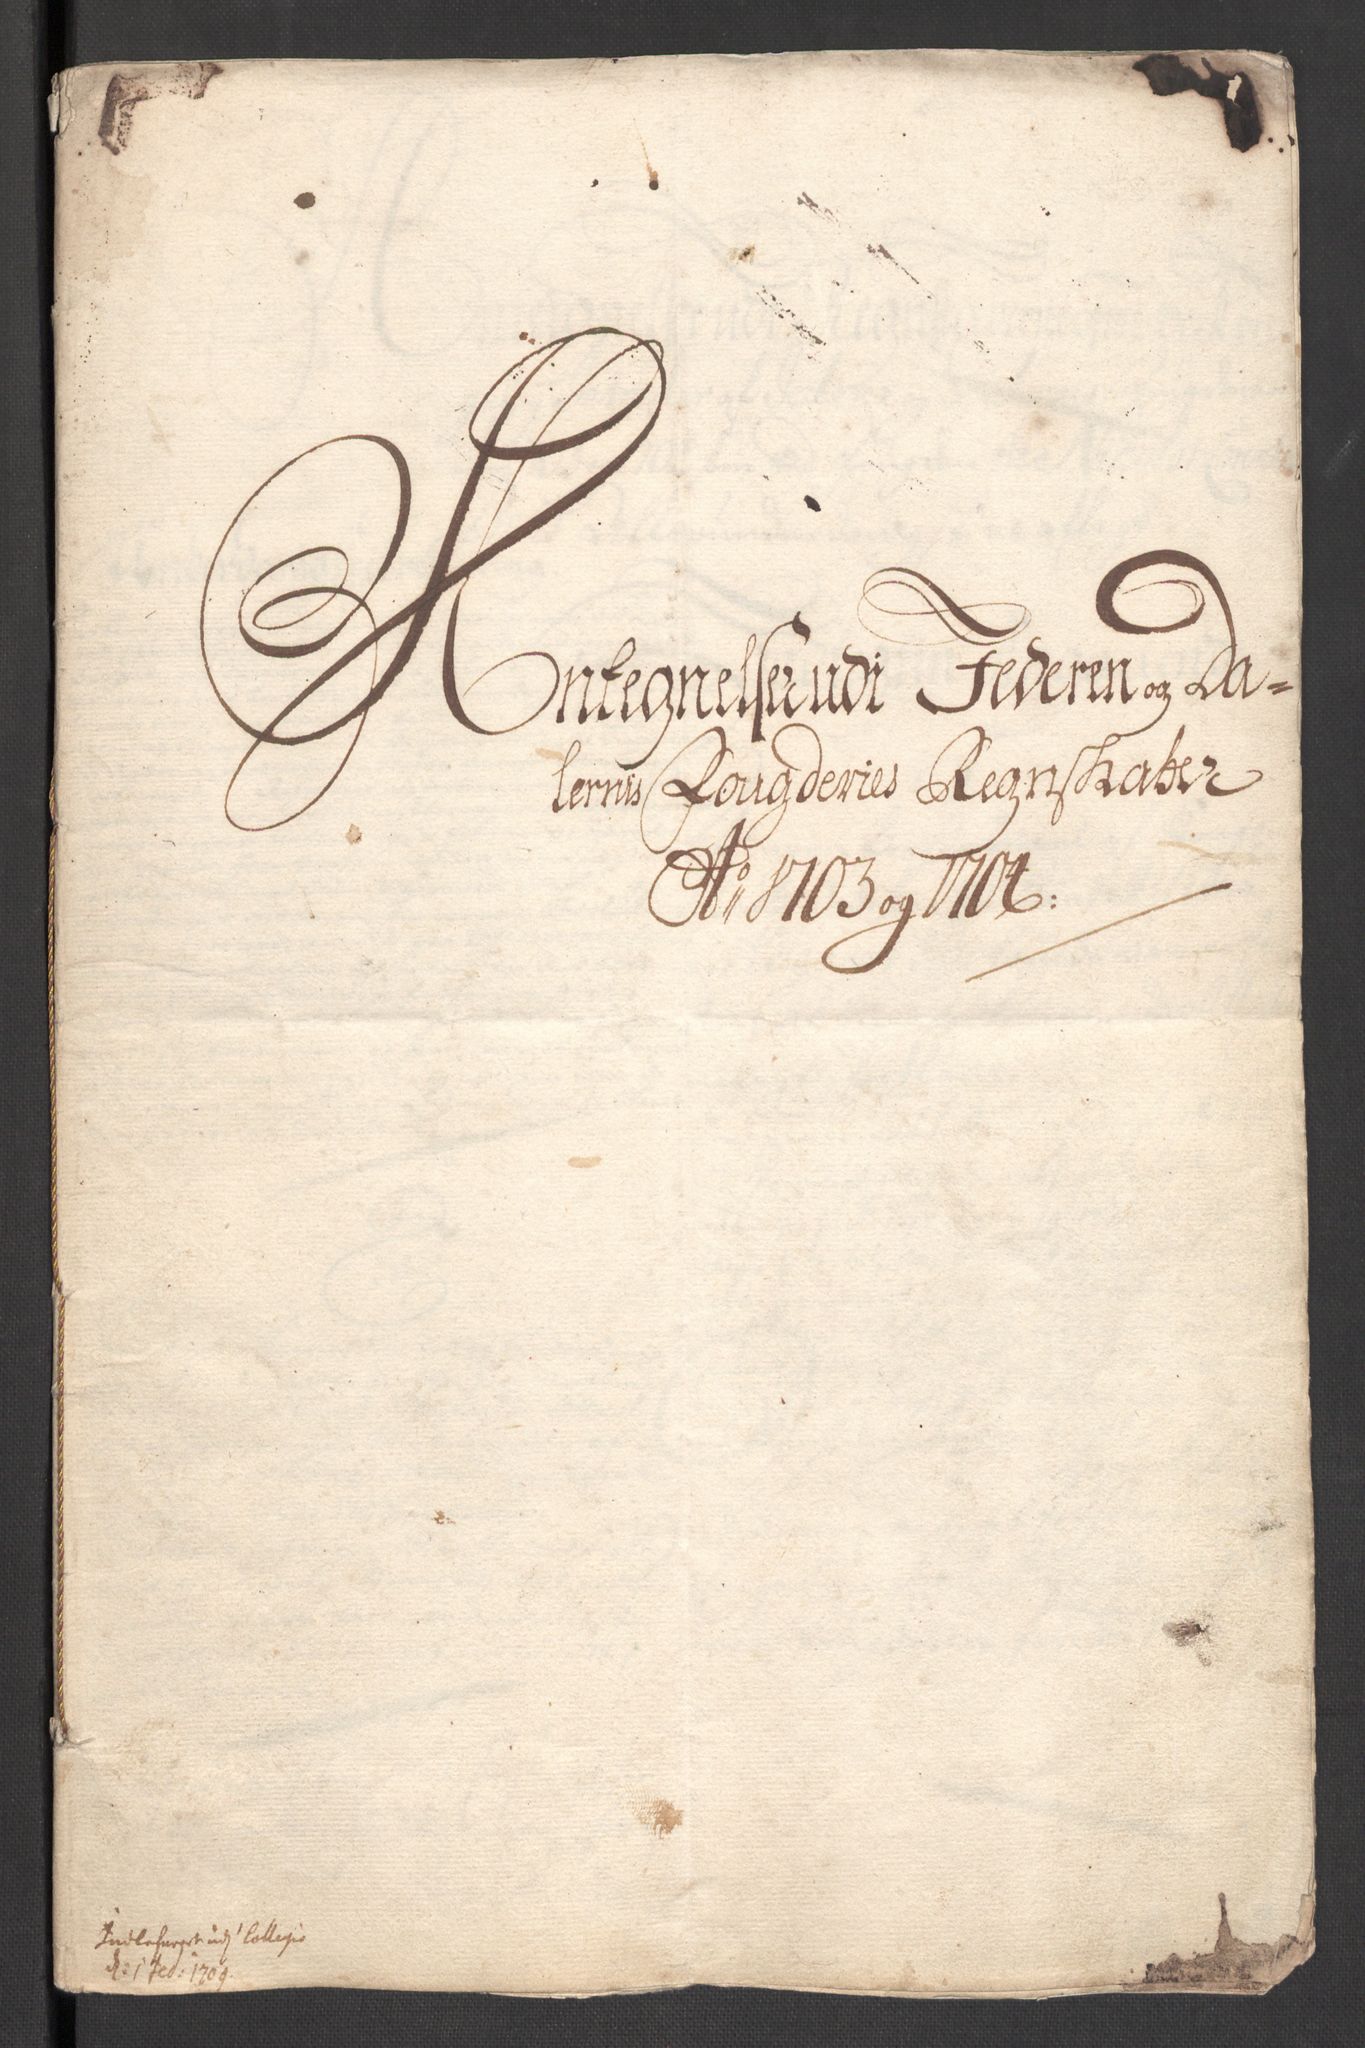 Antegnelser udi Jederen og Da=
lernis Fougderies Regnskaber
Ao: 1703 og 1704:
Indlefveret udj Collegio
d: 1 Feb: 1709.